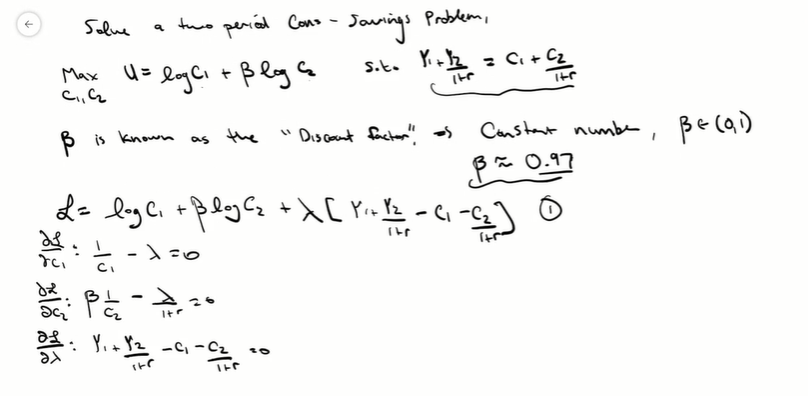 Solve a two period Cons - Savings Problem,
Max U = log C₁ + β log C₂ s.t. Y₁ + Y₂/1+r = C₁ + C₂/1+r
C₁, C₂
β is known as the "Discount factor". ⇒ Constant number, β ∈ (0,1)
β ≈ 0.97
ℒ = log C₁ + β log C₂ + λ [ Y₁ + Y₂/1+r - C₁ - C₂/1+r ] ①
∂ℒ/∂C₁ : 1/C₁ - λ = 0
∂ℒ/∂C₂ : β 1/C₂ - λ/1+r = 0
∂ℒ/∂λ : Y₁ + Y₂/1+r - C₁ - C₂/1+r = 0